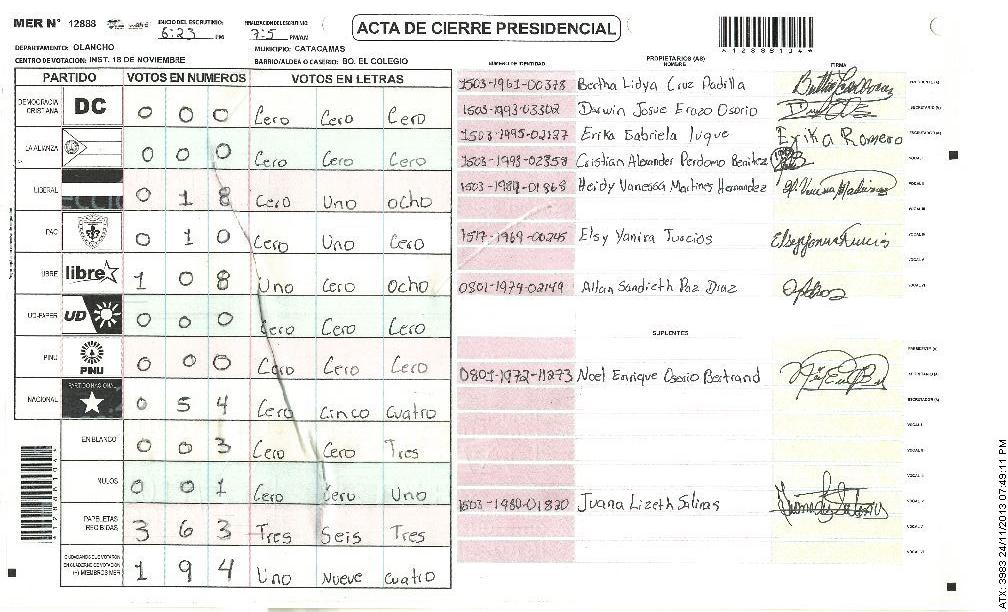 MER Nº 12888
INICIO DEL ESCRUTINIO: 6:23 PM
FINALIZACION DEL ESCRUTINIO 7:5 PM/AM
ACTA DE CIERRE PRESIDENCIAL
*12888134*
DEPARTAMENTO: OLANCHO
MUNICIPIO: CATACAMAS
CENTRO DE VOTACION: INST. 18 DE NOVIEMBRE
BARRIO/ALDEA O CASERIO: BO. EL COLEGIO
PARTIDO VOTOS EN NUMEROS VOTOS EN LETRAS
DEMOCRACIA CRISTIANA DC 0 0 0 Cero Cero Cero
LA ALIANZA 0 0 0 Cero Cero Cero
LIBERAL 0 1 8 Cero Uno ocho
PAC 0 1 0 Cero Uno Cero
LIBRE libre 1 0 8 Uno Cero Ocho
UD-FAPER UD 0 0 0 Cero Cero Cero
PINU PINU 0 0 0 Cero Cero Cero
NACIONAL PARTIDO NACIONAL 0 5 4 Cero Cinco Cuatro
EN BLANCO 0 0 3 Cero Cero Tres
NULOS 0 0 1 Cero Cero Uno
PAPELETAS RECIBIDAS 3 6 3 Tres Seis Tres
CIUDADANOS QUE VOTARON EN CUADERNO DE VOTACION (+) MIEMBROS MER 1 9 4 Uno Nueve Cuatro
PROPIETARIOS (AS)
NUMERO DE IDENTIDAD NOMBRE FIRMA
1503-1961-00378 Bertha Lidya Cruz Padilla PRESIDENTE (A)
1503-1993-03302 Darwin Josue Erazo Osorio SECRETARIO (A)
1503-1995-02127 Erika Gabriela Luque Erika Romero ESCRUTADOR (A)
1503-1993-02358 Cristian Alexander Perdomo Benitez VOCAL I
1503-1987-01868 Heidy Vanessa Martines Hernandez VOCAL II
VOCAL III
1517-1969-00245 Elsy Yanira Turcios VOCAL IV
VOCAL V
0801-1974-02149 Allan Sandieth Paz Diaz VOCAL VI
SUPLENTES
PRESIDENTE (A)
0801-1972-11273 Noel Enrique Osorio Bertrand SECRETARIO (A)
ESCRUTADOR (A)
VOCAL I
VOCAL II
VOCAL III
1503-1980-01820 Juana Lizeth Salinas VOCAL IV
VOCAL V
VOCAL VI
ATX: 3983 24/11/2013 07:49:11 PM